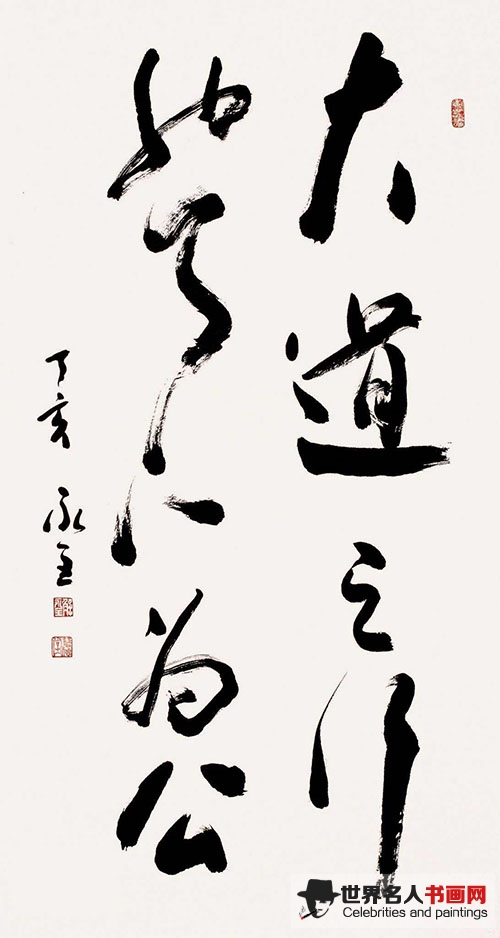 大道之行
也天下为公
丁亥
世界名人书画网
Celebrities and paintings